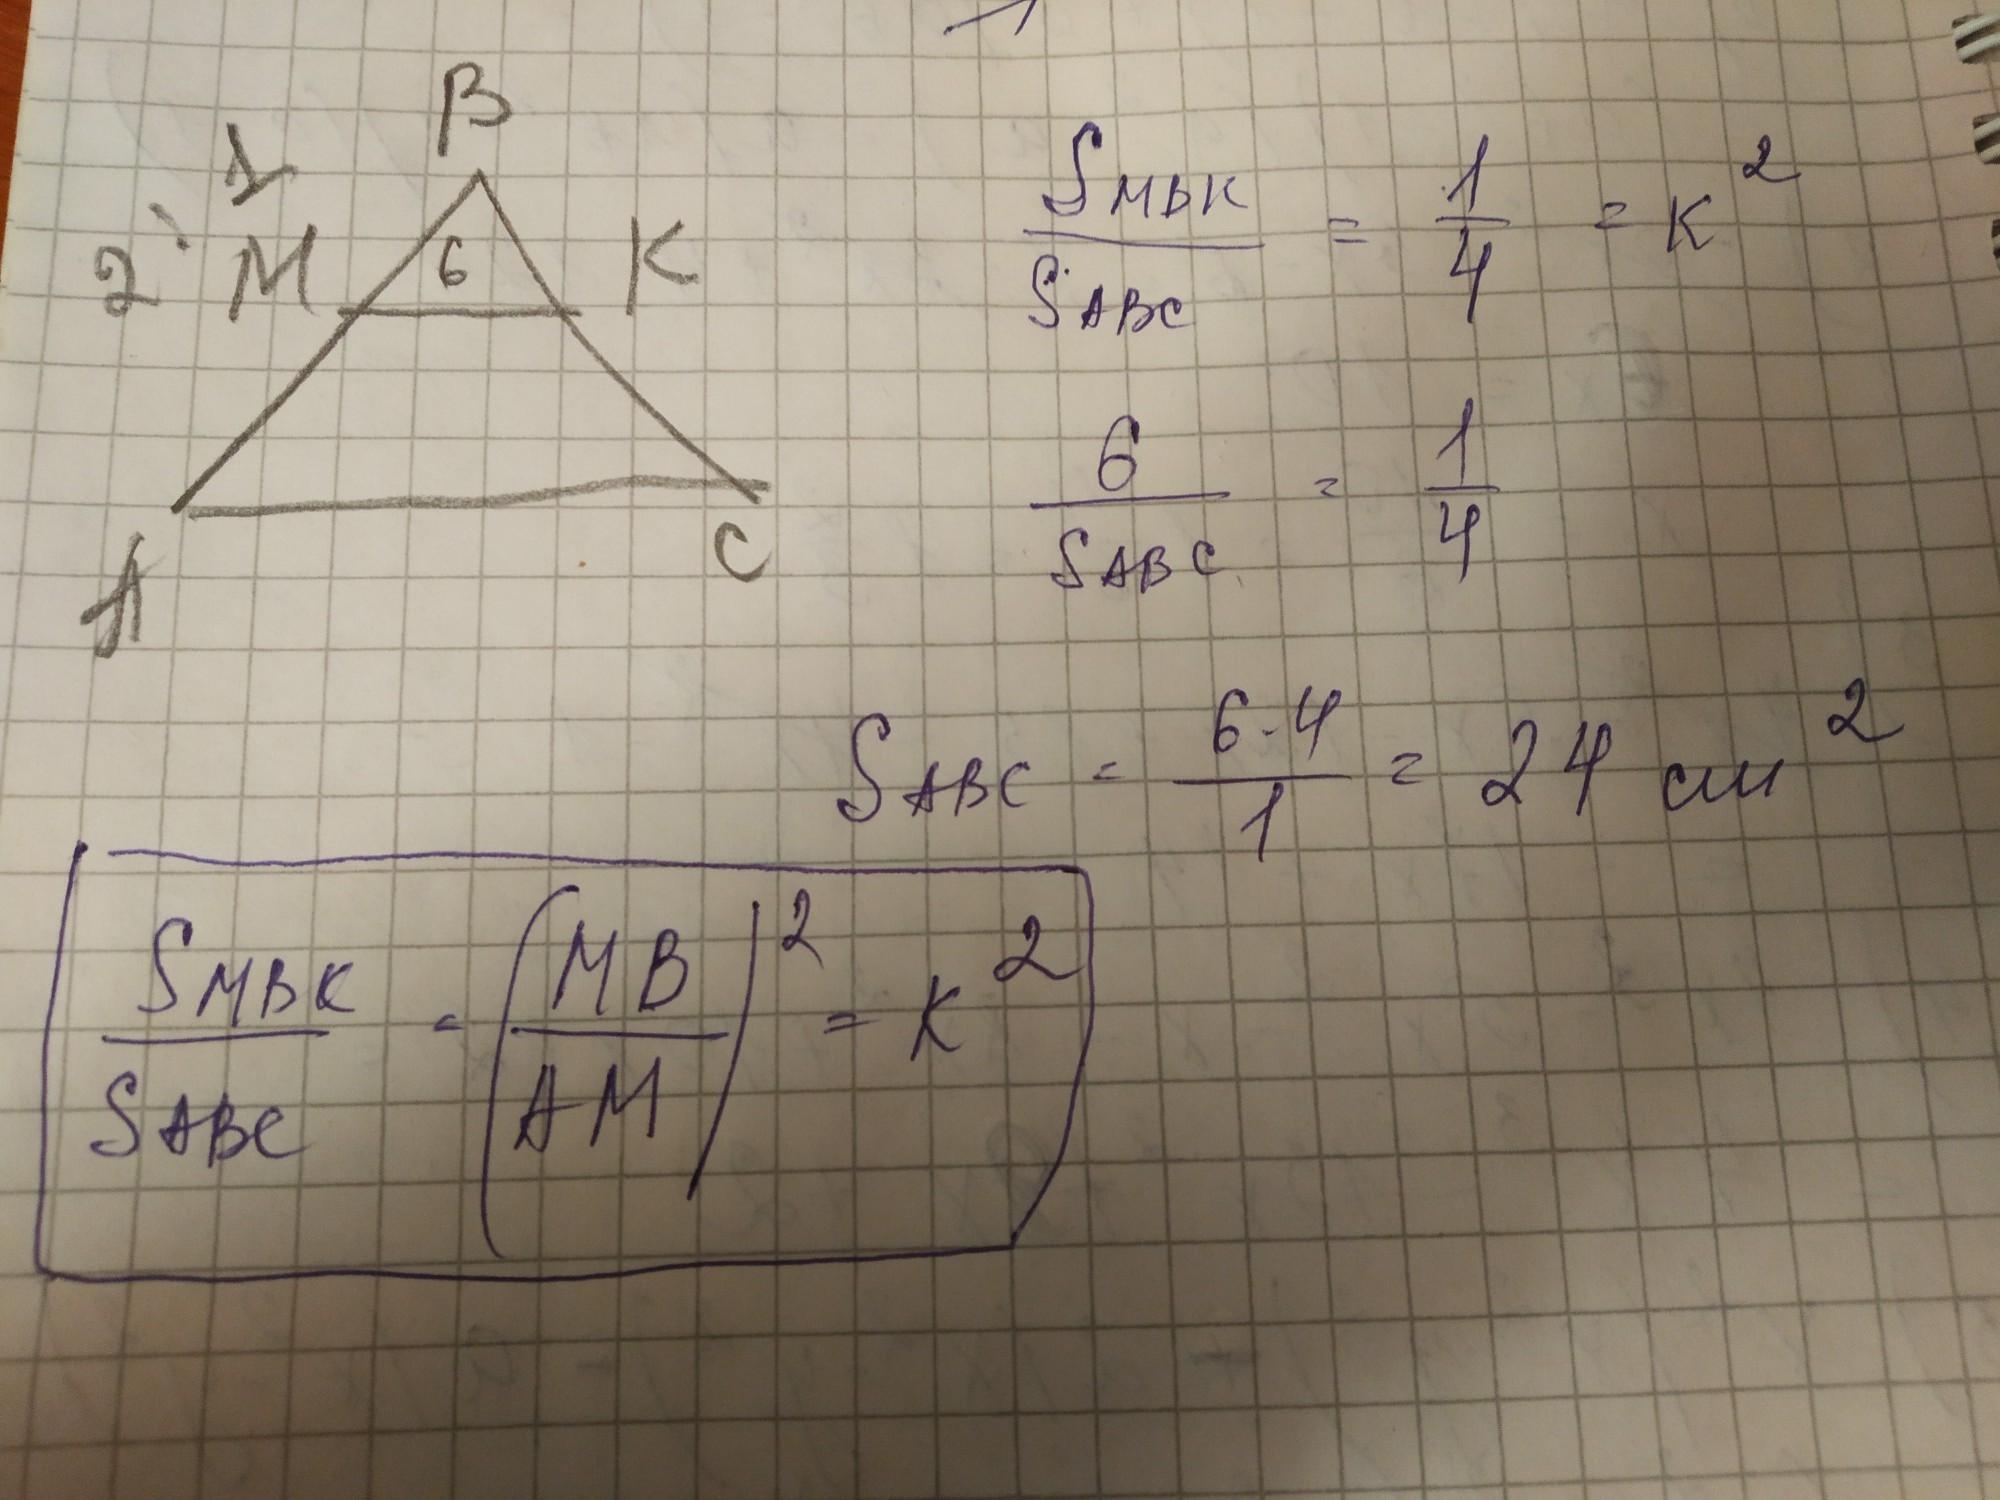 B
1
2 M 6 K
A C
S MBK / S ABC = 1/4 = K²
6 / S ABC = 1/4
S ABC = 6·4 / 1 = 24 см²
S MBK / S ABC = (MB / AM)² = K²